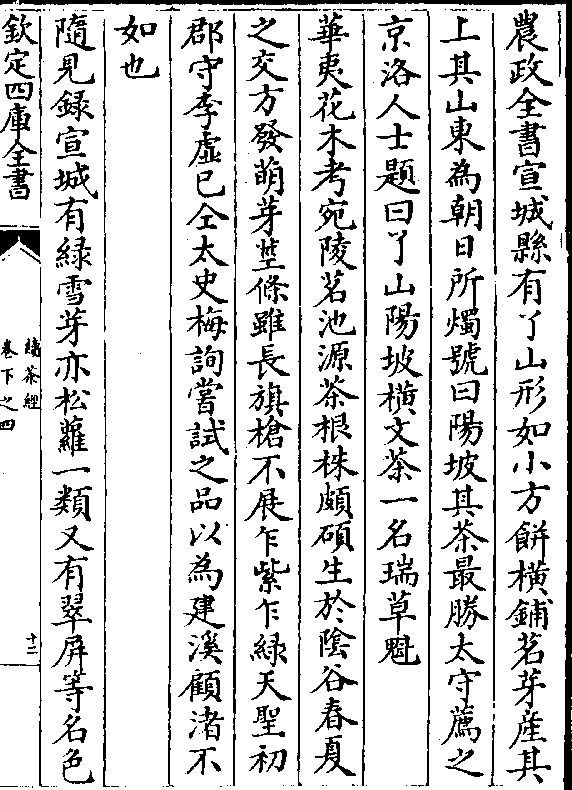 農政全書宣城縣有丫山形如小方餅橫鋪茗芽產其
上其山東為朝日所燭號曰陽坡其茶最勝太守薦之
京洛人士題曰丫山陽坡橫文茶一名瑞草魁
華夷花木考宛陵茗池源茶根株頗碩生於陰谷春夏
之交方發萌芽莖條雖長旗槍不展乍紫乍綠天聖初
郡守李虛已仝太史梅詢嘗試之品以為建溪顧渚不
如也
隨見録宣城有綠雪芽亦松蘿一類又有翠屏等名色
欽定四庫全書
續茶經
卷下之四
十二